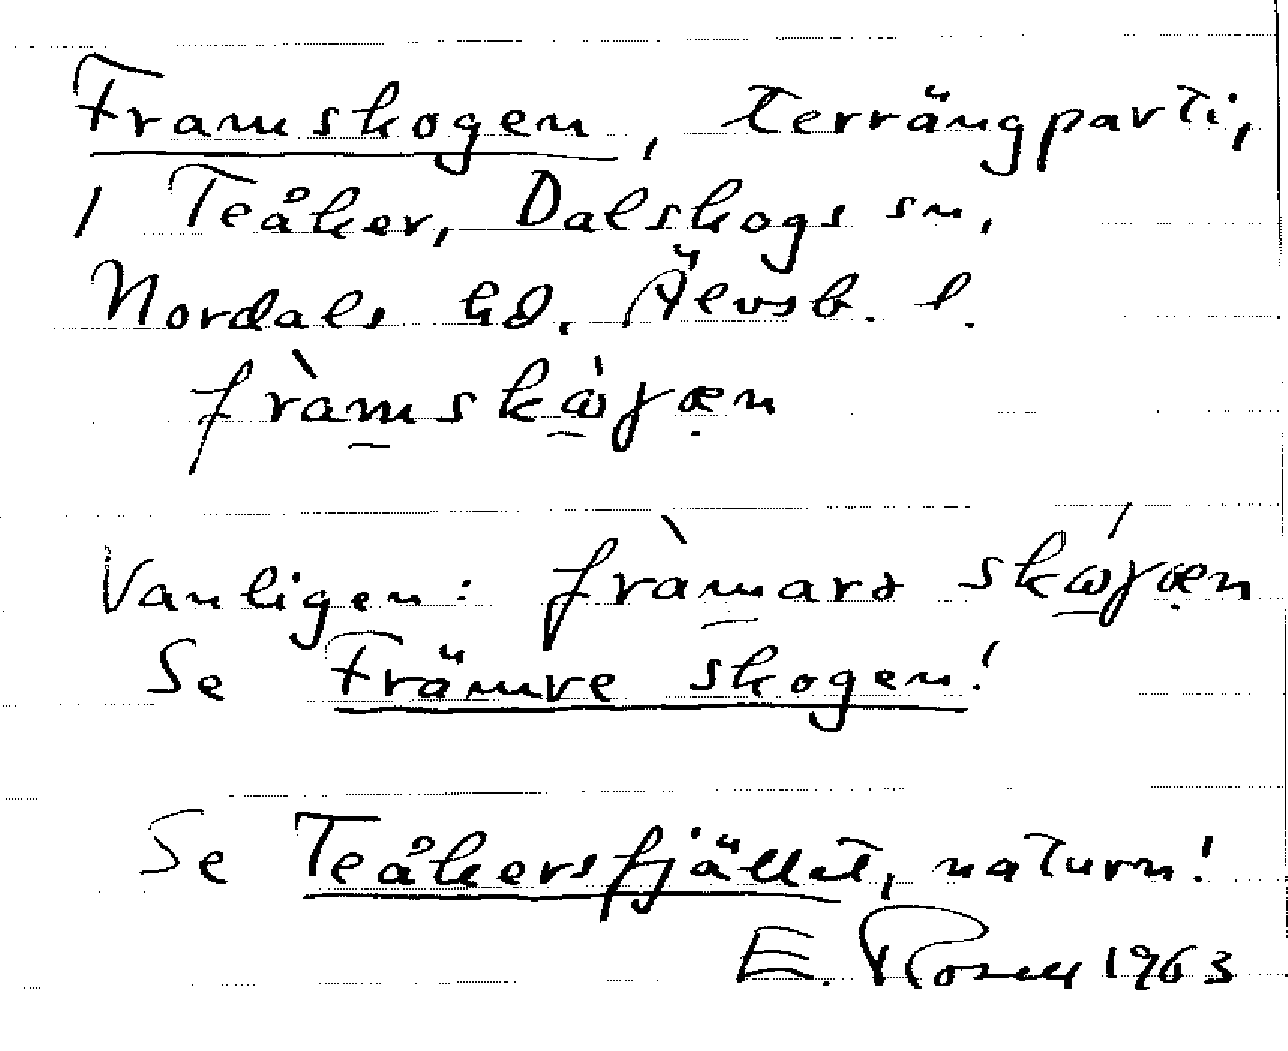 Framskogen, terrängparti,
i Teåker, Dalskogs sn,
Nordals hd. Älvsb. l.
fràmskɷ̀γæn
Vanligen: fràmarə skɷ́γæn
Se Främre skogen!
Se Teåkersfjället, naturn!
E. Rosell 1963